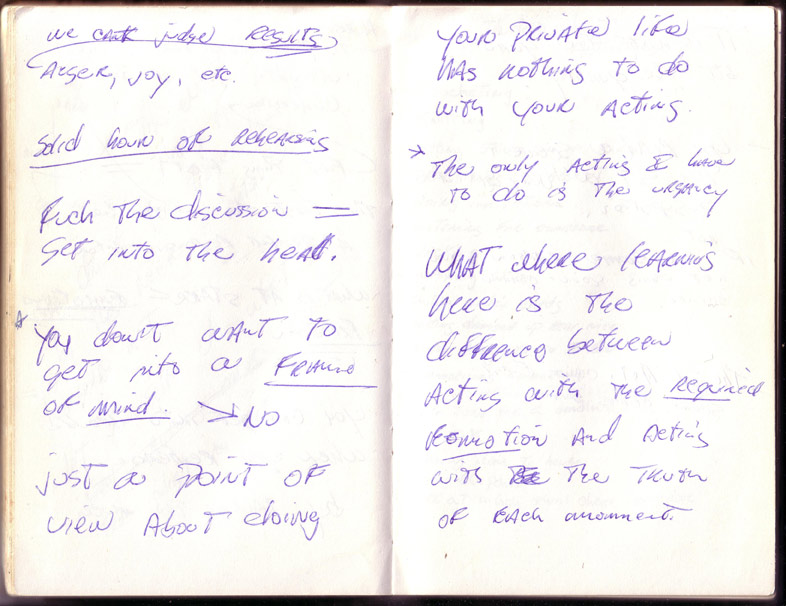 we can't judge results
Anger, joy, etc.
Solid hour of rehearsing
Fuck the discussion =
Get into the head.
You don't want to
get into a Frame
of mind. → NO
just a point of
view About doing
Your Private life
has nothing to do
with your Acting.
The only Acting I have
to do is the urgency
What where learning
here is the
difference between
Acting with the Required
Emotion And Acting
with the Truth
of Each moment.